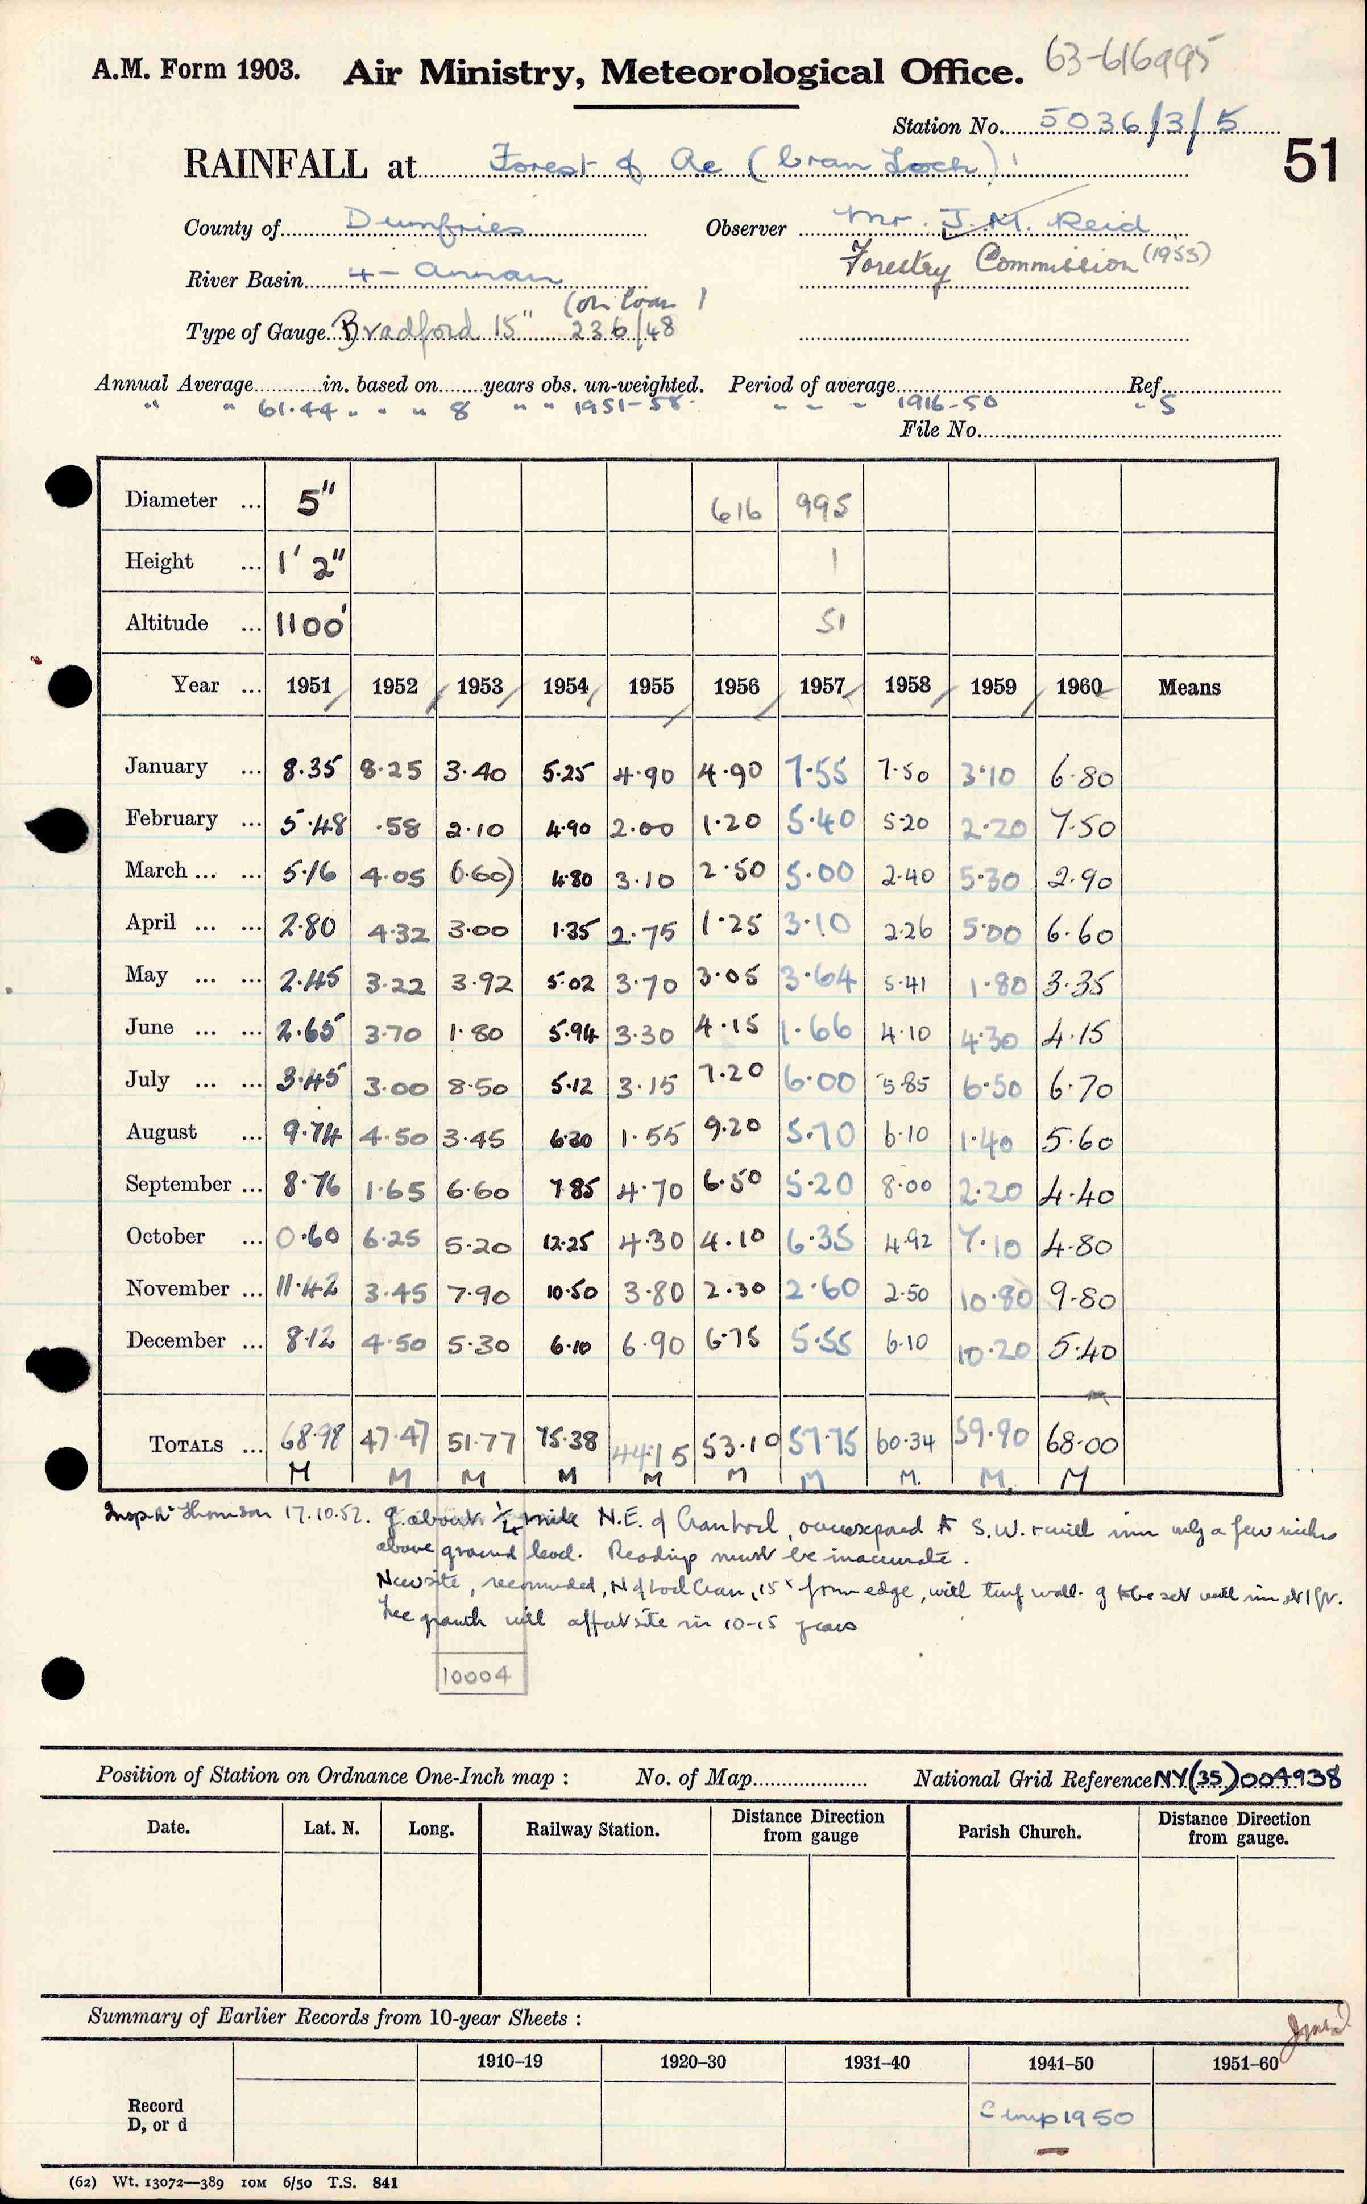 63-616995
A.M. Form 1903. Air Ministry, Meteorological Office.
Station No. 5036/3/5
51
RAINFALL at Forest of Ae (Cran Loch)
County of Dumfries Observer Mr. J. M. Reid
Forestry Commission (1953)
River Basin 4 - Annan
(on loan)
Type of Gauge Bradford 15" 236/48
Annual Average in. based on years obs. un-weighted. Period of average Ref.
" " 61.44 " " " 8 " " 1951-58. " " " 1916-50 " 5
File No.
Diameter ... 5" 616 995
Height ... 1' 2" 1
Altitude ... 1100' 51
Year ... 1951 1952 1953 1954 1955 1956 1957 1958 1959 1960 Means
January ... 8.35 8.25 3.40 5.25 4.90 4.90 7.55 7.50 3.10 6.80
February ... 5.48 .58 2.10 4.90 2.00 1.20 5.40 5.20 2.20 7.50
March ... ... 5.16 4.05 (0.60) 4.80 3.10 2.50 5.00 2.40 5.30 2.90
April ... ... 2.80 4.32 3.00 1.35 2.75 1.25 3.10 2.26 5.00 6.60
May ... ... 2.45 3.22 3.92 5.02 3.70 3.05 3.64 5.41 1.80 3.35
June ... ... 2.65 3.70 1.80 5.94 3.30 4.15 1.66 4.10 4.30 4.15
July ... ... 3.45 3.00 8.50 5.12 3.15 7.20 6.00 5.85 6.50 6.70
August ... 9.74 4.50 3.45 6.30 1.55 9.20 5.70 6.10 1.40 5.60
September ... 8.76 1.65 6.60 7.85 4.70 6.50 5.20 8.00 2.20 4.40
October ... 0.60 6.25 5.20 12.25 4.30 4.10 6.35 4.92 7.10 4.80
November ... 11.42 3.45 7.90 10.50 3.80 2.30 2.60 2.50 10.80 9.80
December ... 8.12 4.50 5.30 6.10 6.90 6.75 5.55 6.10 10.20 5.40
TOTALS ... 68.98 47.47 51.77 75.38 44.15 53.10 57.75 60.34 59.90 68.00
M M M M M M M M. M. M
Insp. Mr Thomson 17.10.52. g. about 1/4 mile N.E. of Cranloch, overexposed to S.W. & with rim only a few inches
above ground level. Readings must be inaccurate.
New site, recommended, N of Loch Cran, 15 x from edge, with turf wall. g to be set with rim at 1 ft.
Tree growth will affect site in 10-15 years
10004
Position of Station on Ordnance One-Inch map : No. of Map National Grid Reference NY(35)004938
Date. Lat. N. Long. Railway Station. Distance Direction from gauge Parish Church. Distance Direction from gauge.
Summary of Earlier Records from 10-year Sheets :
1910–19 1920–30 1931–40 1941–50 1951–60
Record
D, or d
Cmp 1950
(62) Wt. 13072—389 10M 6/50 T.S. 841